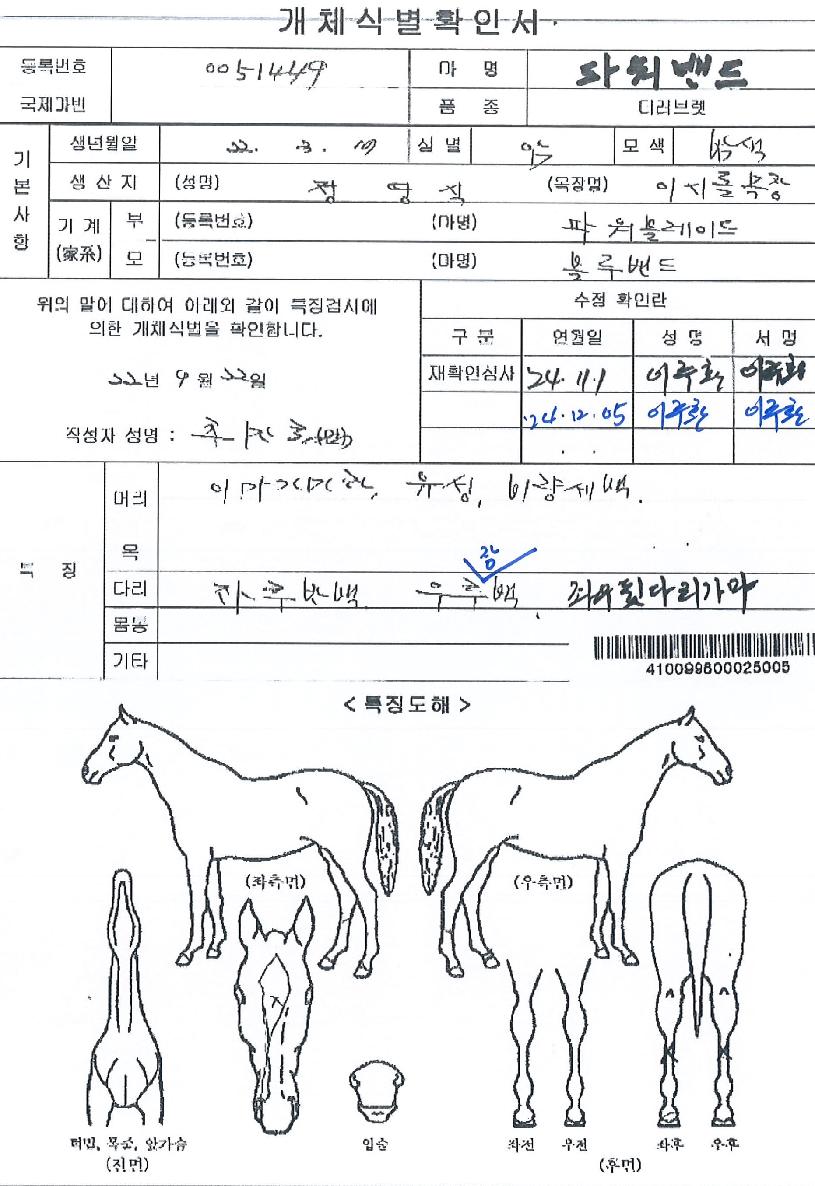 개체식별확인서
등록번호 0051449 마 명 파워밴드
국제마번 품 종 더러브렛
기본사항
생년월일 22. 3. 10 실별 암 모색 밤색
생산지 (성명) 정영식 (목장명) 이시돌목장
기계(家系) 부 (등록번호) (마명) 파워블레이드
모 (등록번호) (마명) 블루밴드
위의 말에 대하여 아래와 같이 특징검사에
의한 개체식별을 확인합니다.
22년 9월 22일
작성자 성명 :
수정 확인란
구분 연월일 성명 서명
재확인심사 '24.11.1 이주환 이주환
'24.12.05 이주환 이주환
특 징
머리 유성, 비량세백.
목
다리 우후 장 백 좌우뒷다리가마
몸통
기타
410099600025005
< 특징도해 >
(좌측면)
(우측면)
턱밑, 목군, 앞가슴
(전면)
입술
좌전 우전 좌후 우후
(후면)